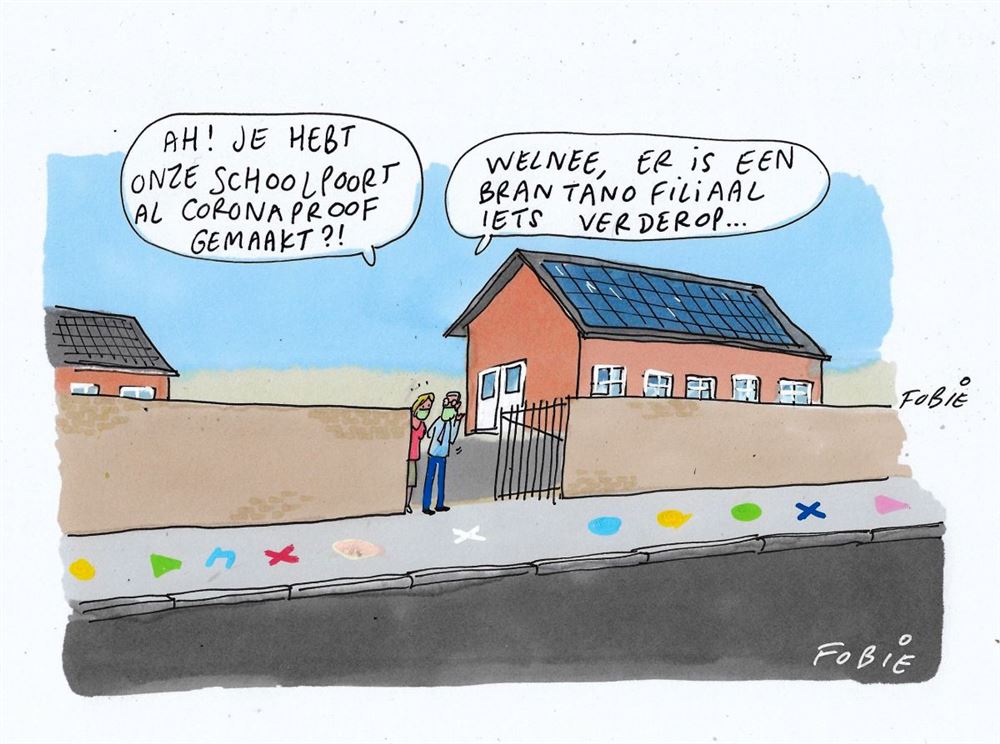 AH! JE HEBT
ONZE SCHOOLPOORT
AL CORONAPROOF
GEMAAKT?!
WELNEE, ER IS EEN
BRANTANO FILIAAL
IETS VERDEROP...
FOBIE
FOBIE